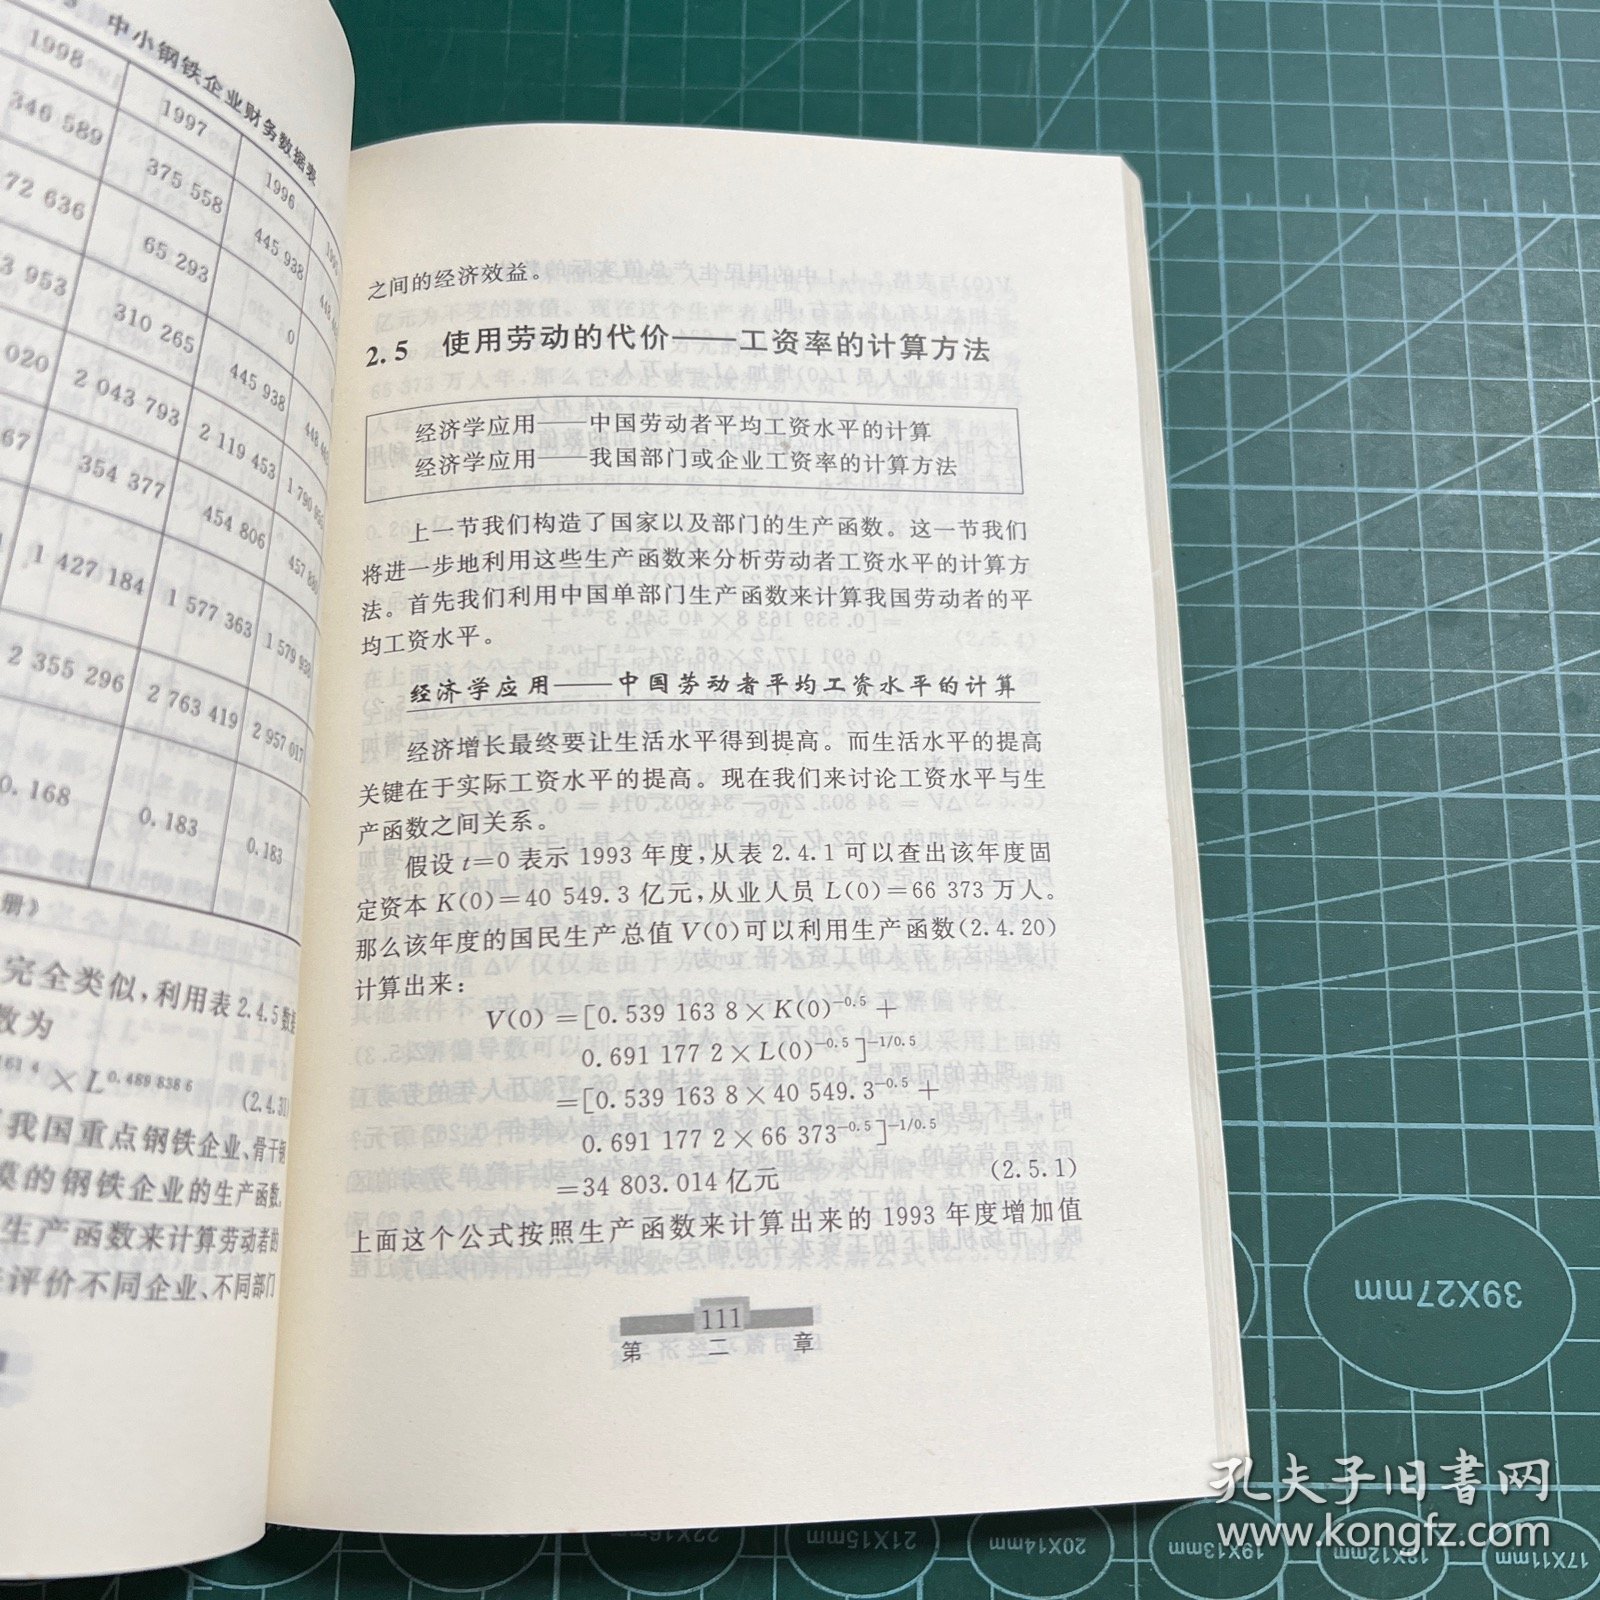 中小钢铁企业财务数据表
1998
1997
1996
346 589
375 558
445 938
72 636
65 293
0
3 953
310 265
445 938
020
2 043 793
2 119 453
1 790 850
67
354 377
454 806
457 800
1 427 184
1 577 363
1 579 938
2 355 296
2 763 419
2 957 017
0.168
0.183
0.183
册》
完全类似,利用表 2.4.5 数据
数为
× L^0.489 838 6
我国重点钢铁企业、骨干钢
模的钢铁企业的生产函数。
生产函数来计算劳动者的
评价不同企业、不同部门
之间的经济效益。
2.5 使用劳动的代价——工资率的计算方法
经济学应用——中国劳动者平均工资水平的计算
经济学应用——我国部门或企业工资率的计算方法
上一节我们构造了国家以及部门的生产函数。这一节我们
将进一步地利用这些生产函数来分析劳动者工资水平的计算方
法。首先我们利用中国单部门生产函数来计算我国劳动者的平
均工资水平。
经济学应用——中国劳动者平均工资水平的计算
经济增长最终要让生活水平得到提高。而生活水平的提高
关键在于实际工资水平的提高。现在我们来讨论工资水平与生
产函数之间关系。
假设 t=0 表示 1993 年度,从表 2.4.1 可以查出该年度固
定资本 K(0)=40 549.3 亿元,从业人员 L(0)=66 373 万人。
那么该年度的国民生产总值 V(0)可以利用生产函数(2.4.20)
计算出来:
V(0) =[0.539 163 8×K(0)^-0.5 +
0.691 177 2×L(0)^-0.5]^-1/0.5
=[0.539 163 8×40 549.3^-0.5 +
0.691 177 2×66 373^-0.5]^-1/0.5
=34 803.014 亿元 (2.5.1)
上面这个公式按照生产函数来计算出来的 1993 年度增加值
111
第二章
39X27mm
22X16mm
21X15mm
20X14mm
19X13mm
18X12mm
17X11mm
孔夫子旧书网
www.kongfz.com